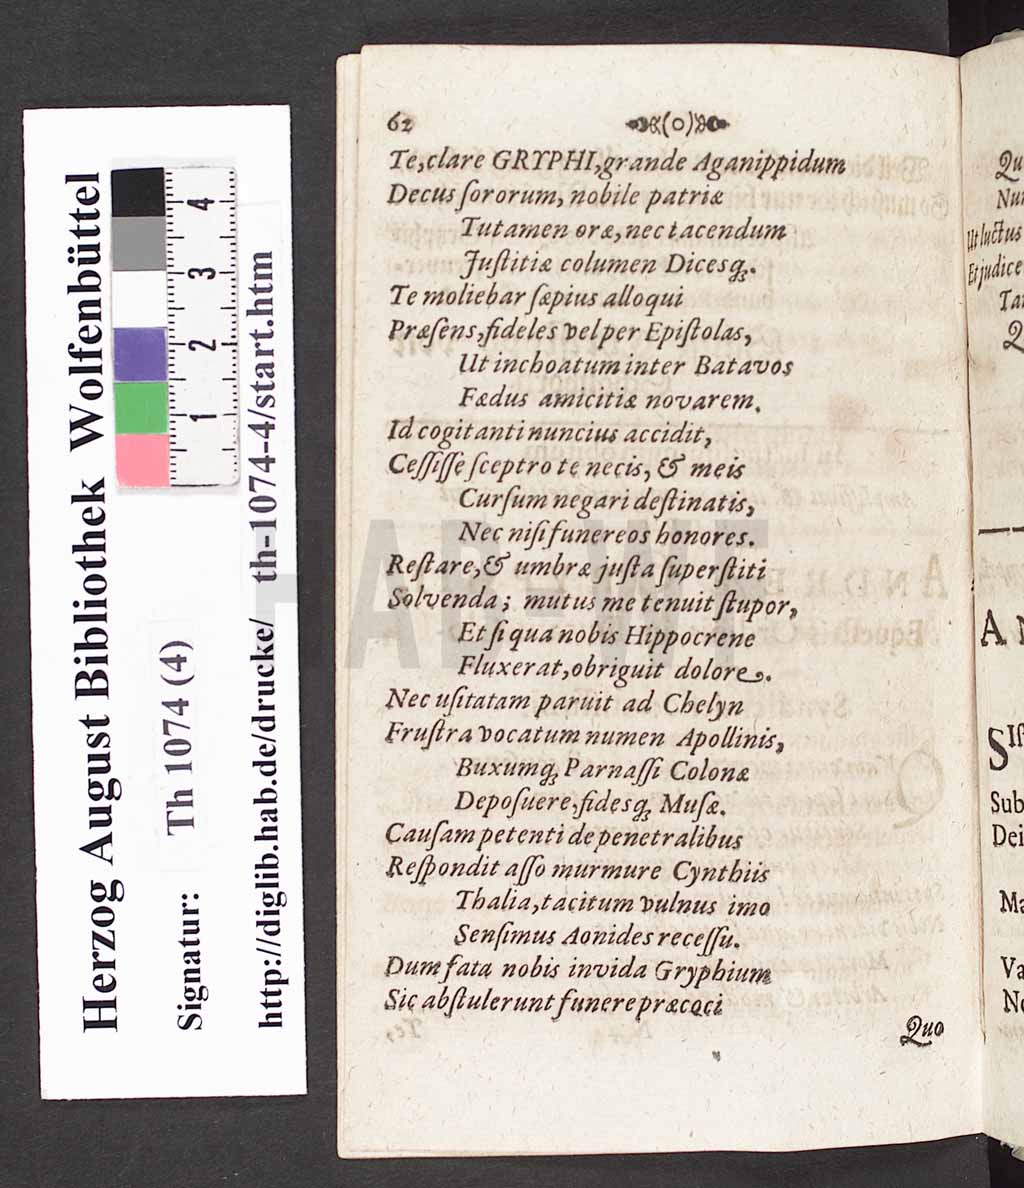 Herzog August Bibliothek Wolfenbüttel
Signatur: Th 1074 (4)
http://diglib.hab.de/drucke/ th-1074-4/start.htm
1 2 3 4
62 (o)
Te, clare GRYPHI, grande Aganippidum
Decus ſororum, nobile patriæ
Tutamen oræ, nec tacendum
Juſtitiæ columen Dicesq́;.
Te moliebar ſæpius alloqui
Præſens, fideles vel per Epiſtolas,
Ut inchoatum inter Batavos
Fædus amicitiæ novarem.
Id cogitanti nuncius accidit,
Ceſſiſſe ſceptro te necis, & meis
Curſum negari deſtinatis,
Nec niſi funereos honores.
Reſtare, & umbræ juſta ſuperſtiti
Solvenda; mutus me tenuit ſtupor,
Et ſi qua nobis Hippocrene
Fluxerat, obriguit dolore.
Nec uſitatam paruit ad Chelyn
Fruſtra vocatum numen Apollinis,
Buxumq́; Parnaſſi Colonæ
Depoſuere, fidesq́; Muſæ.
Cauſam petenti de penetralibus
Reſpondit aſſo murmure Cynthiis
Thalia, tacitum vulnus imo
Senſimus Aonides receſſu.
Dum fata nobis invida Gryphium
Sic abſtulerunt funere præcoci
Quo
HAB WF
Qu
Nun
Ut luctus
Et judice
Tan
Q
A N
Siſ
Sub
Dei
Ma
Va
No